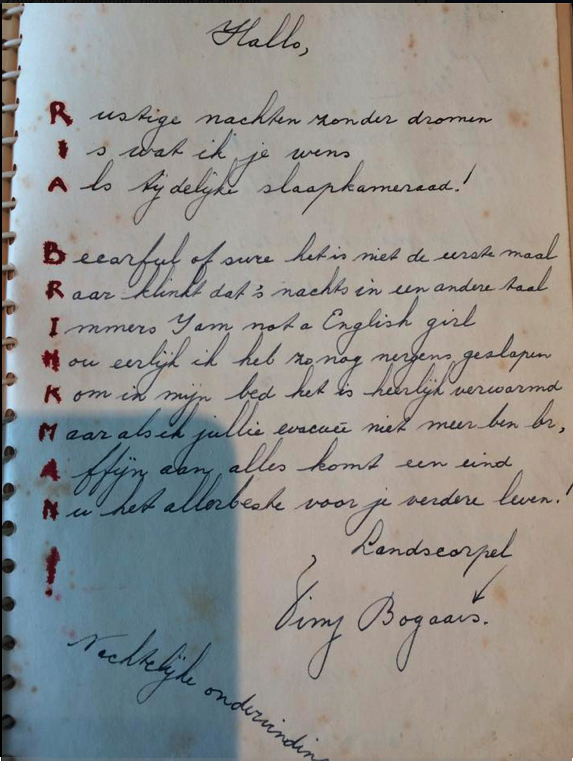 Hallo,
Rustige nachten zonder dromen
Is wat ik je wens
Als tijdelijke slaapkameraad!
Becarful of sure het is niet de eerste maal
Raar klinkt dat 's nachts in een andere taal
Immers I am not a English girl
Nou eerlijk ik heb zo nog nergens geslapen
Kom in mijn bed het is heerlijk verwarmd
Maar als ik jullie evacuée niet meer ben br,
Affijn aan alles komt een eind
Nu het allerbeste voor je verdere leven!
!
Landscorpel
Timy Bogaars.
Nachtelijke ondervinding